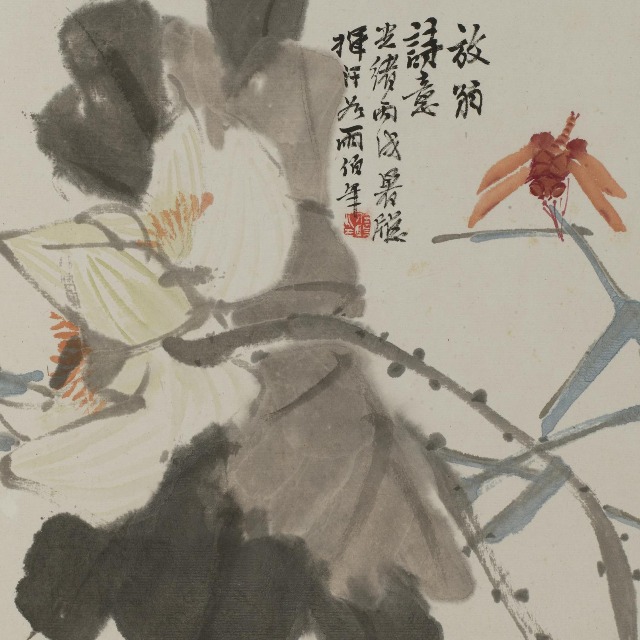 放翁
詩意
光緒丙戌暑
揮汗如雨伯年